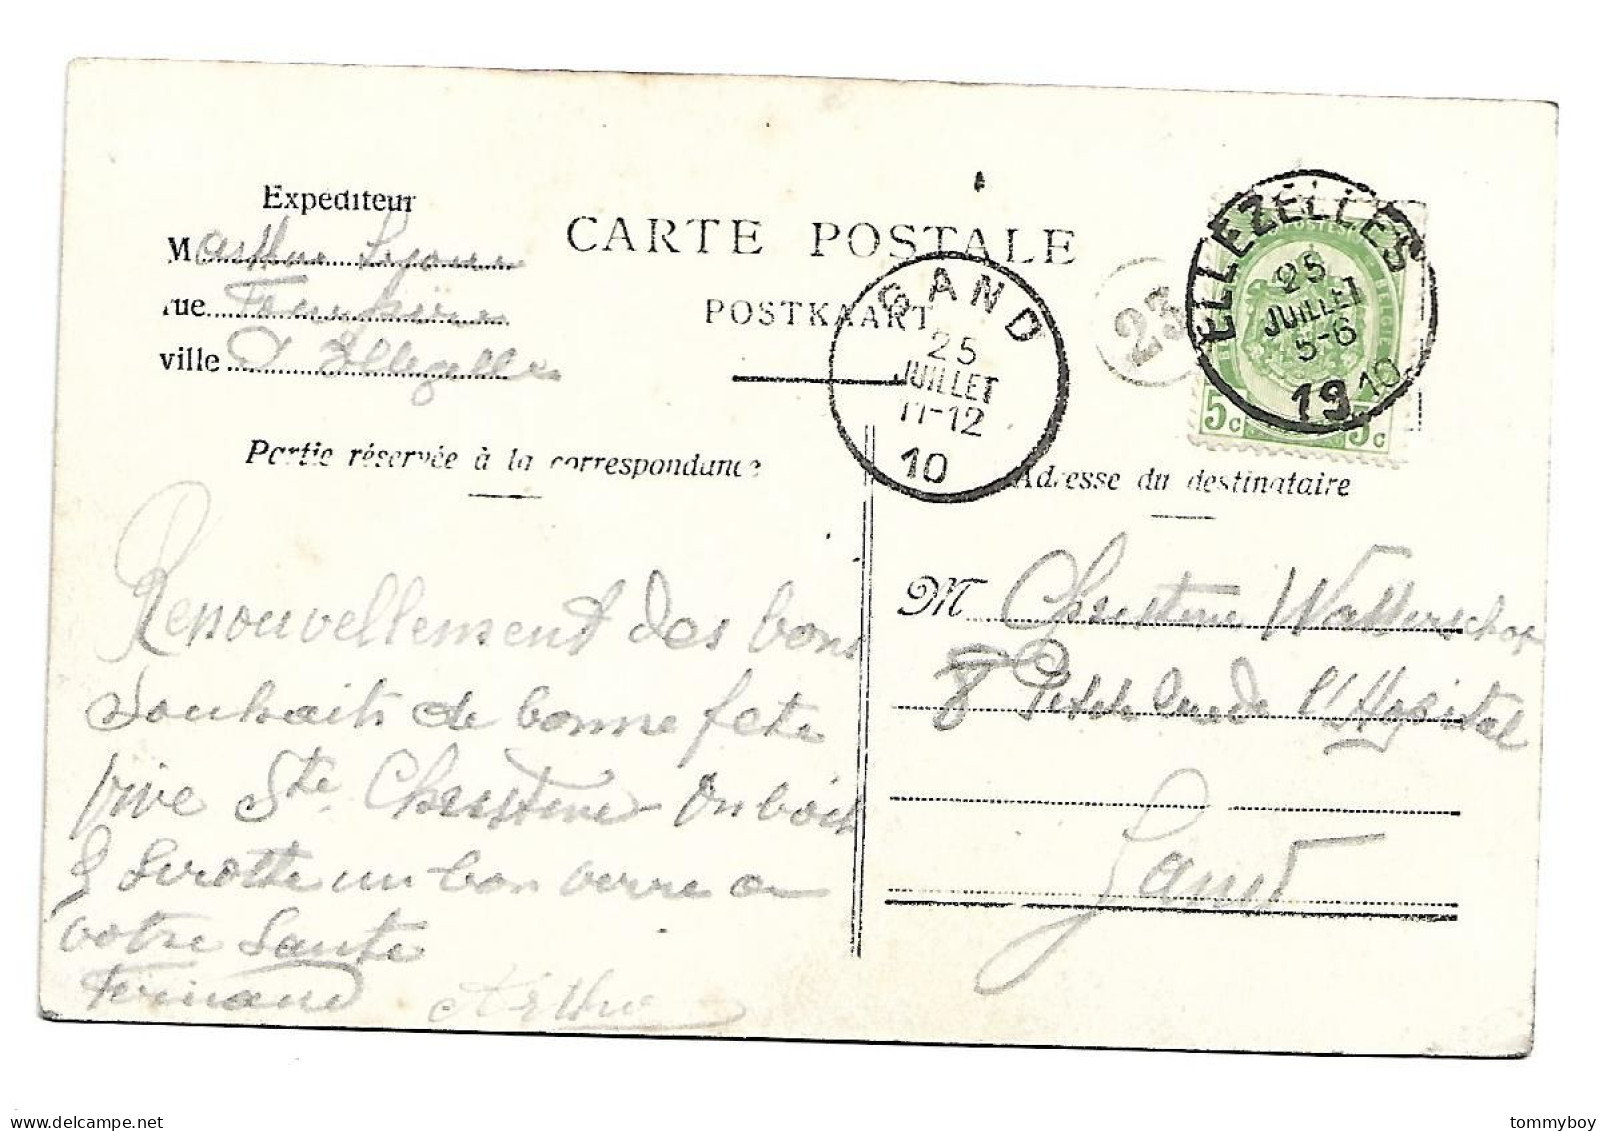 Expéditeur
M arthur
rue
ville à Ellezelles
CARTE POSTALE
POSTKAART
GAND
25
JUILLET
11-12
10
23
ELLEZELLES
25
JUILLET
5-6
1910
POSTES
BELGIE
5c 5c
Partie réservée à la correspondance
Adresse du destinataire
Renouvellement des bons
Souhaits de bonne fete
vive Ste Christine on boit
à Sirotte un bon verre a
votre Sante
Fernand Arthur
M Christine Watterschot
8 Petite Rue de l'Hopital
Gand
delcampe.net
tommyboy